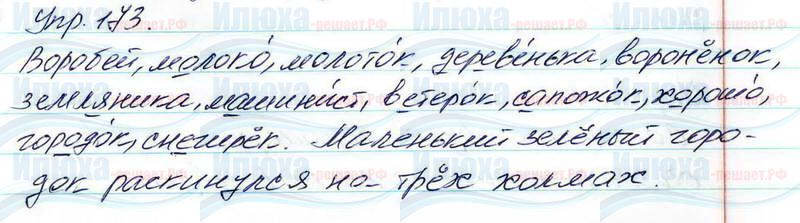 Упр. 173.
Воробей, молоко́, молото́к, дереве́нька, воронёнок,
земляника, машини́ст, ветеро́к, сапожо́к, хорошо́,
городо́к, снегирёк. Маленький зелёный горо-
док раскинулся на трёх холмах.